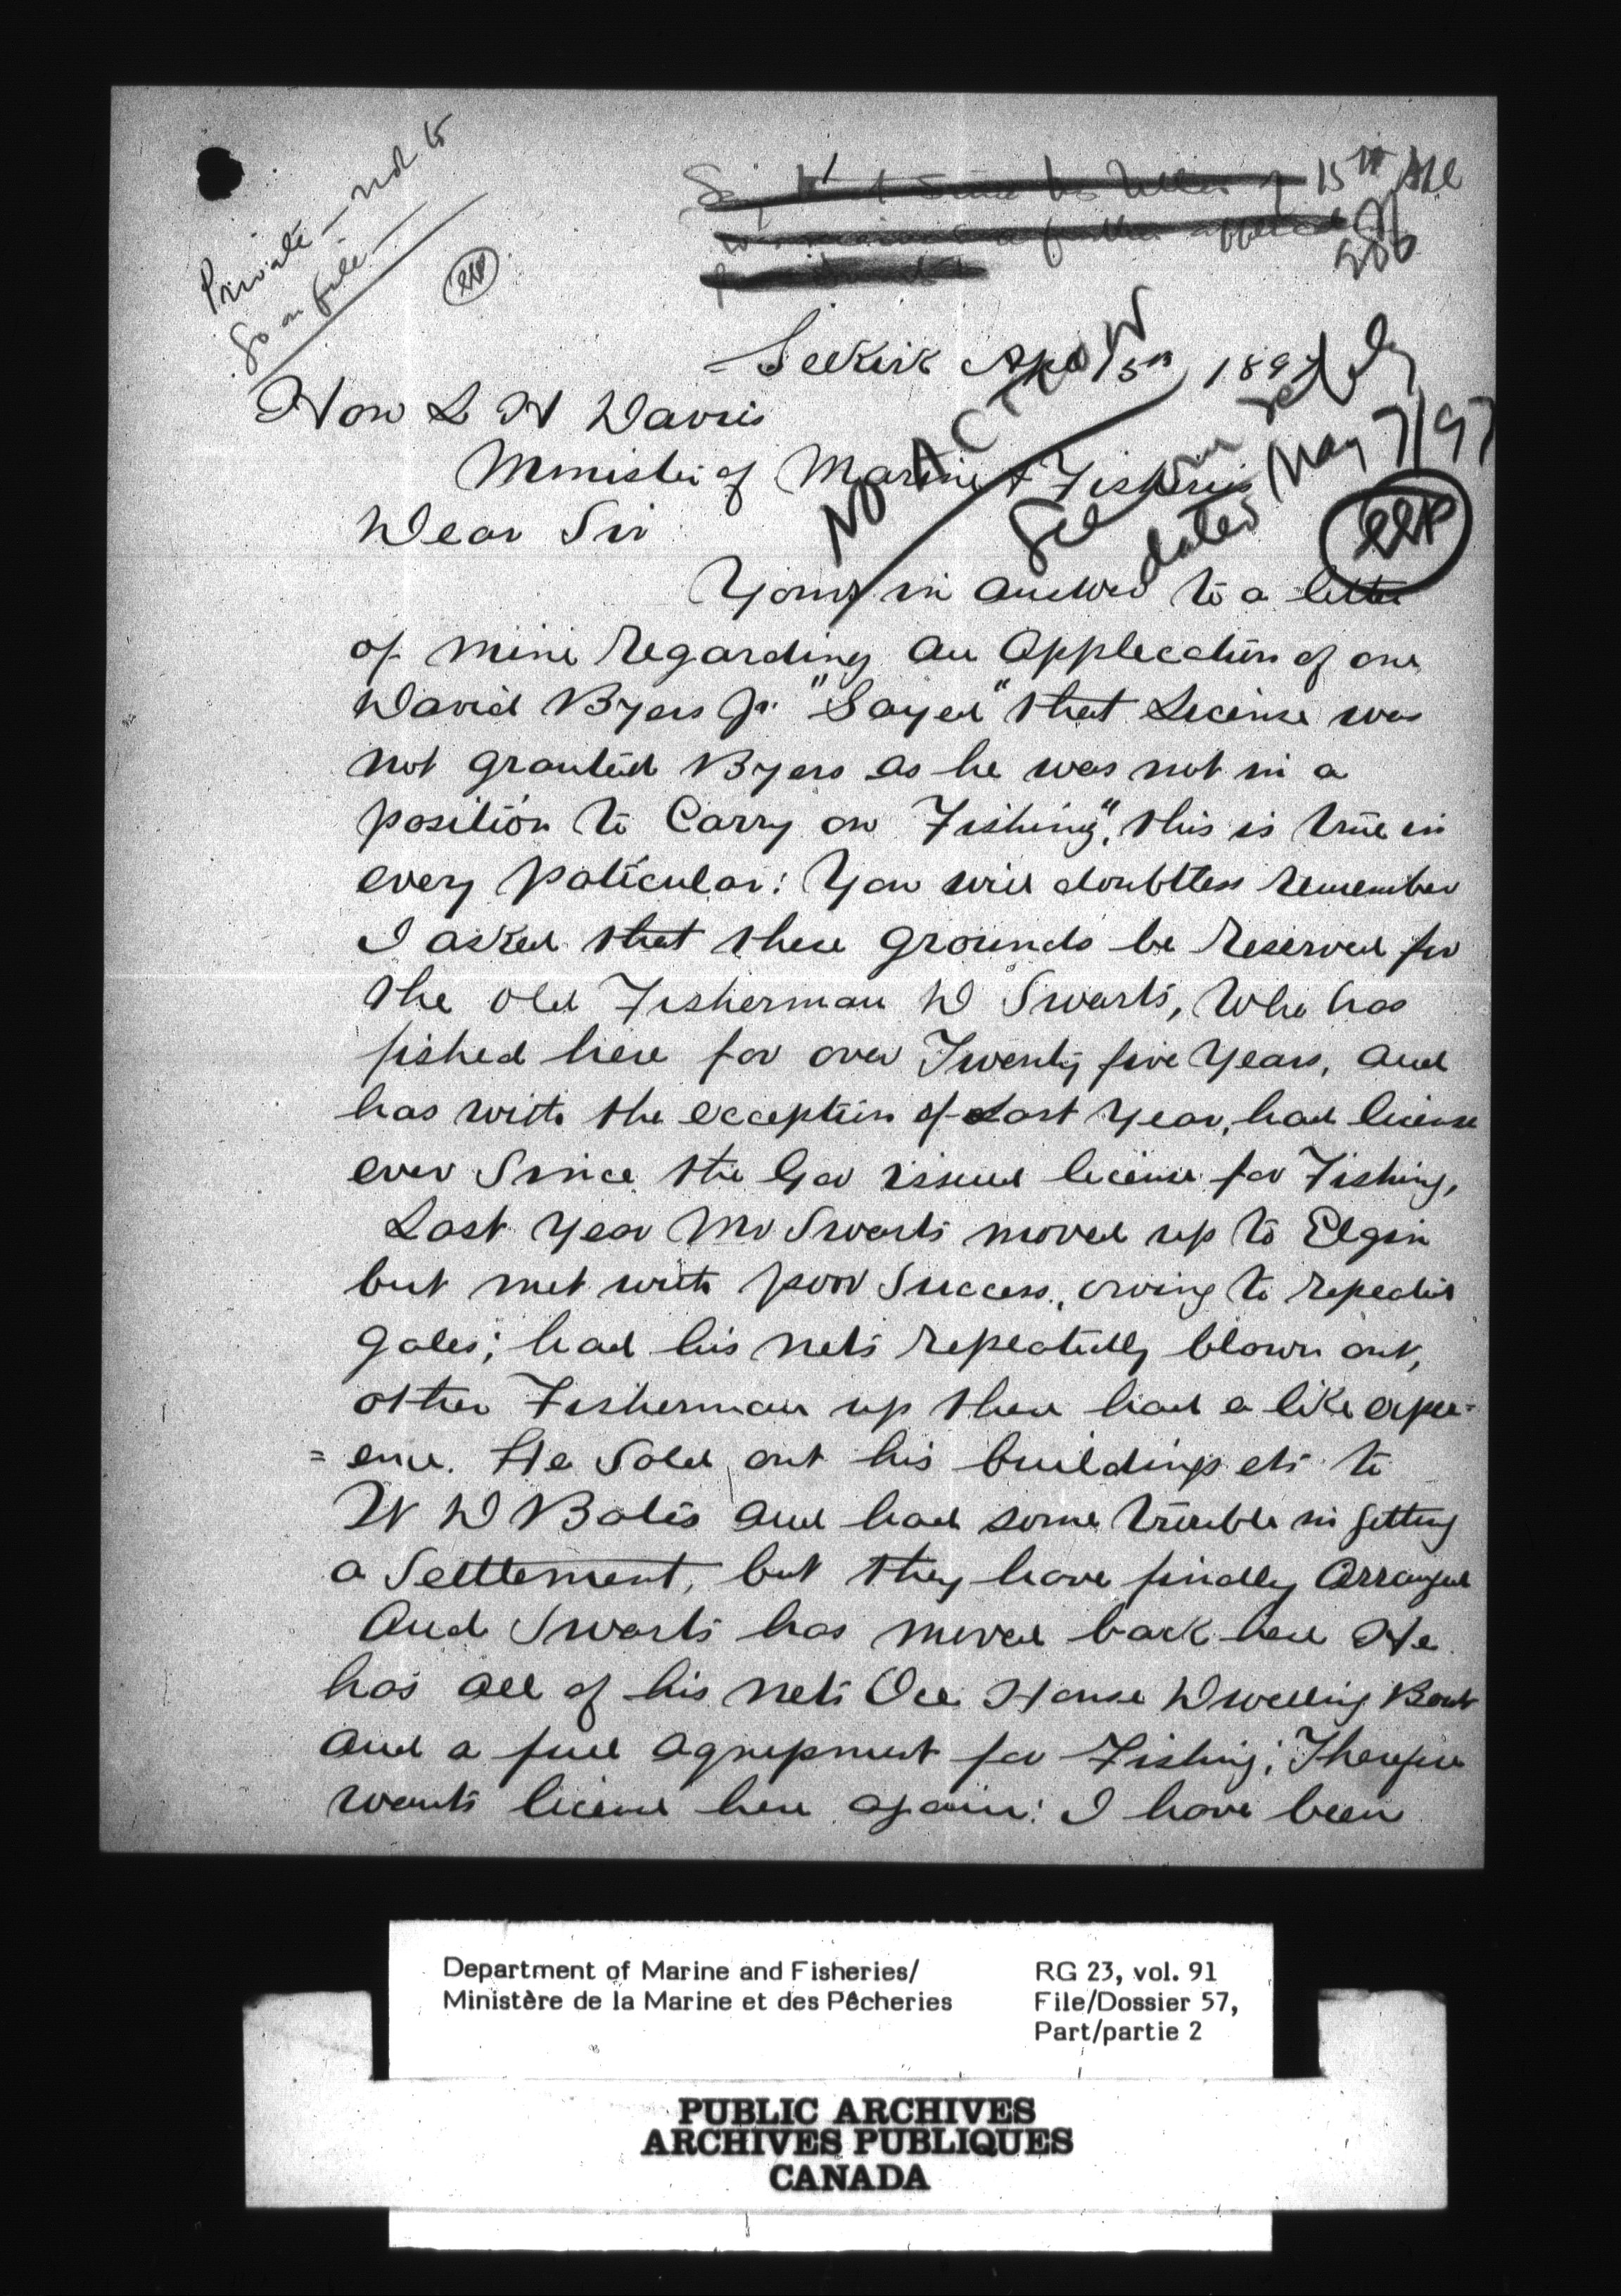 Private — not to
Go on file
15th Apl
Selkirk Apl 15th 1897
NO ACTION
See
dated May 7/97
Hon L H Davis
Minister of Marine & Fisheries
Dear Sir
Yours in answer to a letter
of mine regarding an application of one
David Byers Jr. "Sayed" that License was
not granted Byers as he was not in a
position to Carry on Fishing", this is true in
every paticular: You will doubtless remember
I asked that these grounds be reserved for
the old Fisherman D Swarts, Who has
fished here for over Twenty five Years, and
has with the exception of Last Year, had license
ever Since the Gov issued license for Fishing,
Last Year Mr Swarts moved up to Elgin
but met with poor Success, owing to repeated
Gales; had his nets repeatedly blown out,
other Fisherman up there had a like exper=
=ence. He Sold out his buildings etc to
W D Bates and had some trouble in getting
a Settlement, but they have finally Arranged
And Swarts has moved back here He
has all of his nets Ice House Dwelling Boat
and a full agrupment for Fishing; Therefore
wants license here again: I have been
Department of Marine and Fisheries/
Ministère de la Marine et des Pêcheries
RG 23, vol. 91
File/Dossier 57,
Part/partie 2
PUBLIC ARCHIVES
ARCHIVES PUBLIQUES
CANADA